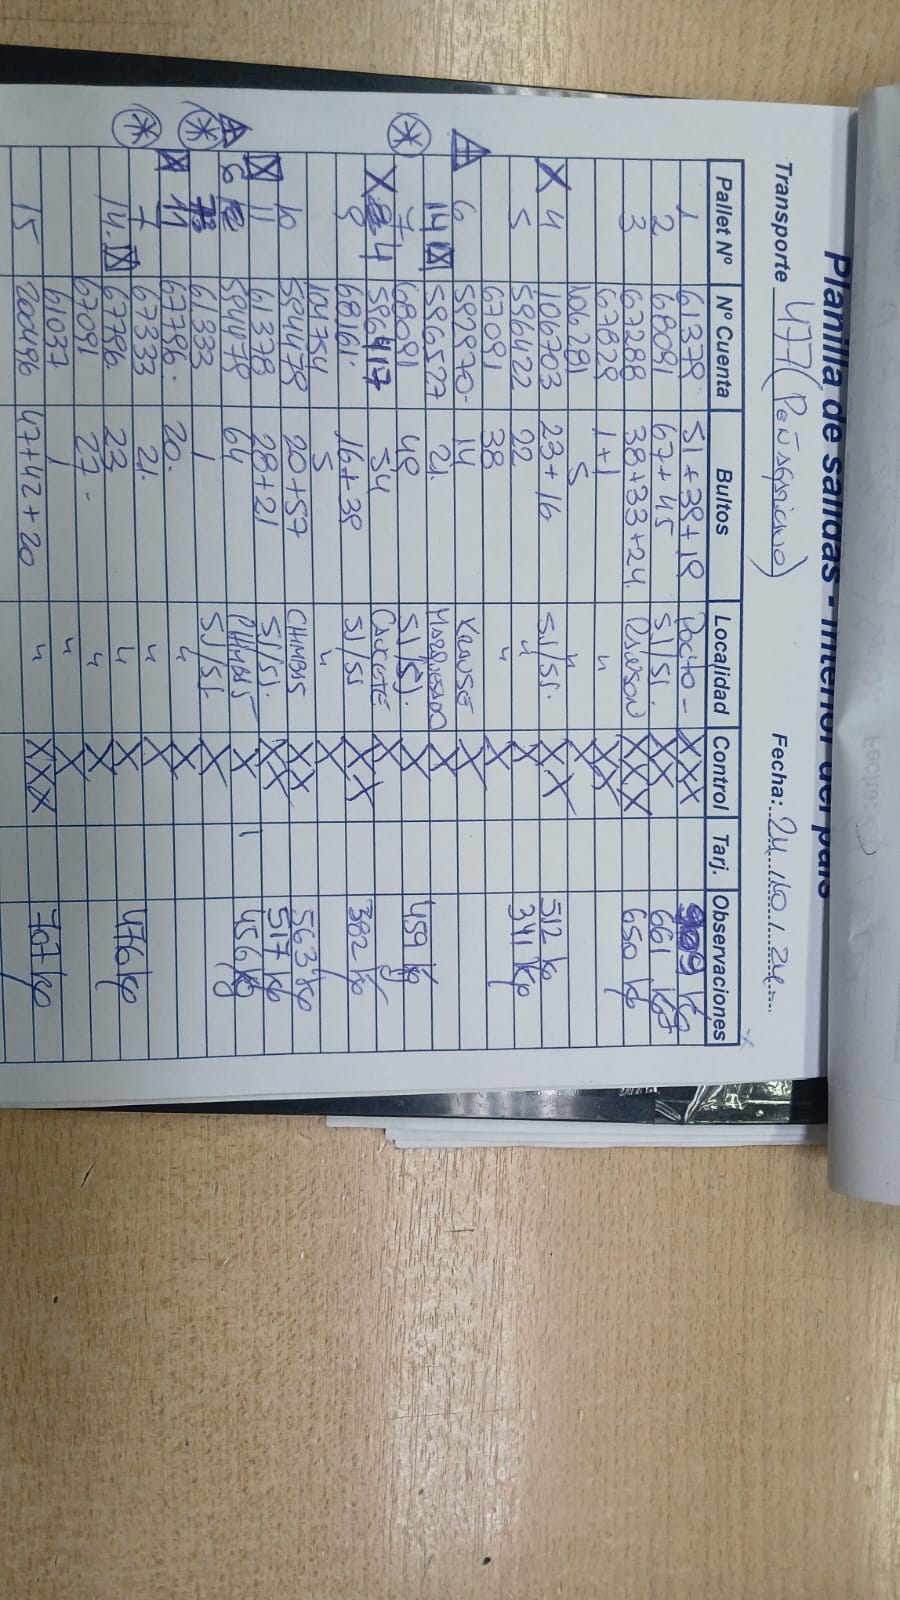 Fecha:
Planilla de salidas - Interior del país
Transporte 477 (Peñagaricano) Fecha: 24/10/24.
Pallet Nº Nº Cuenta Bultos Localidad Control Tarj. Observaciones
1 61379 51+39+19 Pocito - XXX 909 Kg
2 68091 67+45 SJ/SJ. XX 661 Kg
3 67288 38+33+24. RAWSON XXX 650 Kg
67829 1+1 " XX
106281 5 " X
X 4 106703 23+16 SJ/SJ. XX 512 Kg
5 596422 22 " X 341 Kg
67091 38 " X
6 592970- 14 KRAUSE X
14 596527 21. MARQUESADO X
7 68091 49 SJ/SJ. X 459 Kg
X 4 596417 54 CAUCETE X
9 68161. 16+39 SJ/SJ XX 382 Kg
104754 5 " X
10 594479 20+57 CHIMBAS XX 563 Kg
11 61378 28+21 SJ/SJ. XX 517 Kg
6 594479 64 CHIMBAS X 456 Kg
7 61333 1 SJ/SJ X
11 67796. 20. " X
7 67333 21. " X
14. 67796. 23 " X 476 Kg
67091 27- " X
61037 1 " X
15 200496 47+42+20 " XXX 707 Kg